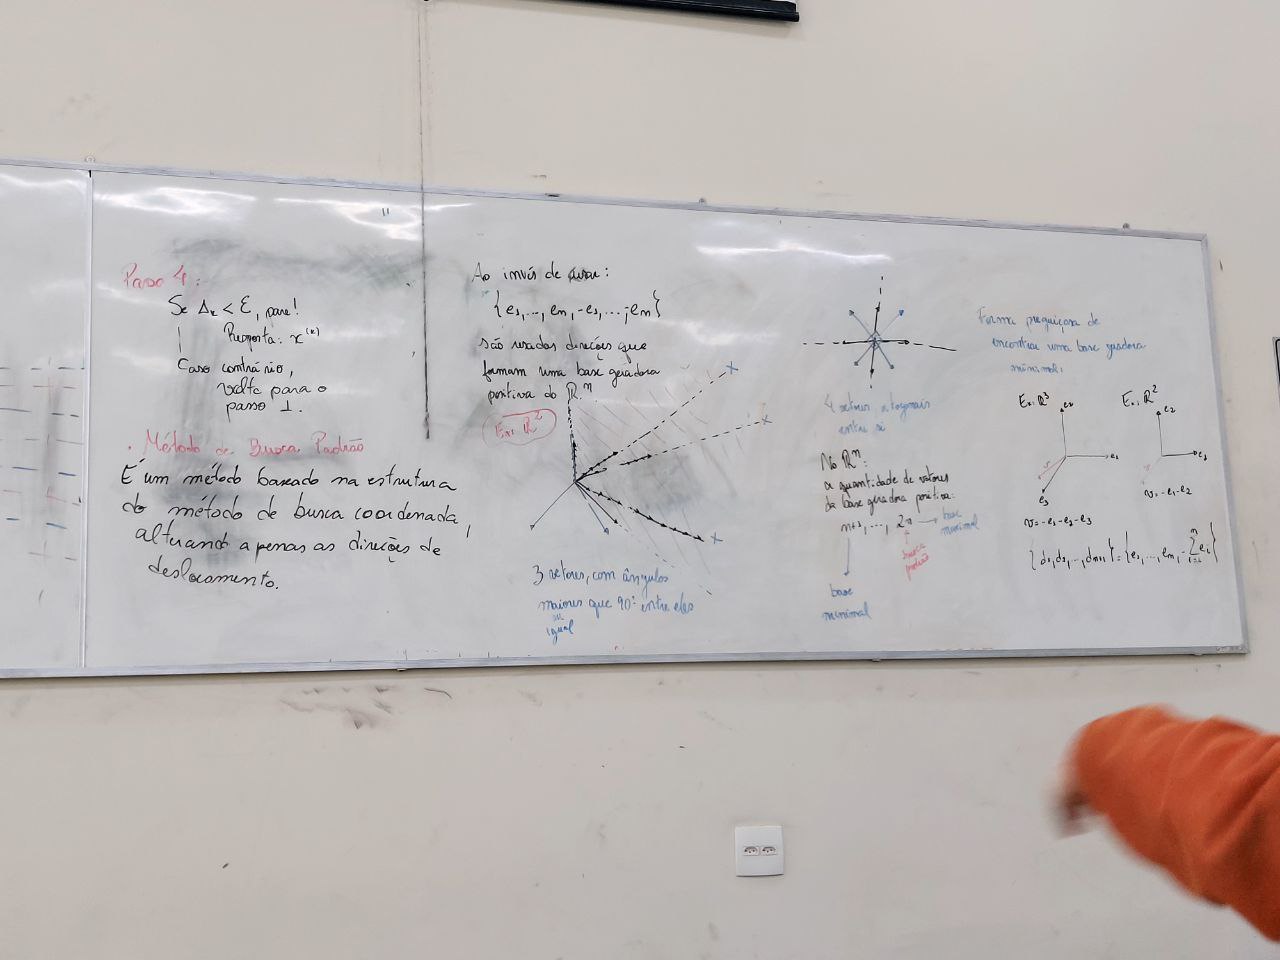 Passo 4:
Se Δk < ε, pare!
Resposta: x^(k)
Caso contrário,
volte para o
passo 1.
• Método de Busca Padrão
É um método baseado na estrutura
do método de busca coordenada,
alterando apenas as direções de
deslocamento.
Ao invés de usar:
{e1, ..., en, -e1, ..., -en}
são usadas direções que
formam uma base geradora
positiva do ℝ^n.
Ex: ℝ^2
3 vetores, com ângulos
maiores que 90° entre eles
ou
igual
4 vetores ortogonais
entre si
No ℝ^n:
a quantidade de vetores
da base geradora positiva:
n+1, ..., 2n → base
maximal
busca
padrão
base
minimal
Forma preguiçosa de
encontrar uma base geradora
minimal:
Ex: ℝ^3
e2
e1
v
e3
v = -e1-e2-e3
Ex: ℝ^2
e2
e1
v
v = -e1-e2
{d1, d2, ..., dn+1} = {e1, ..., en, -∑ i=1 n ei}